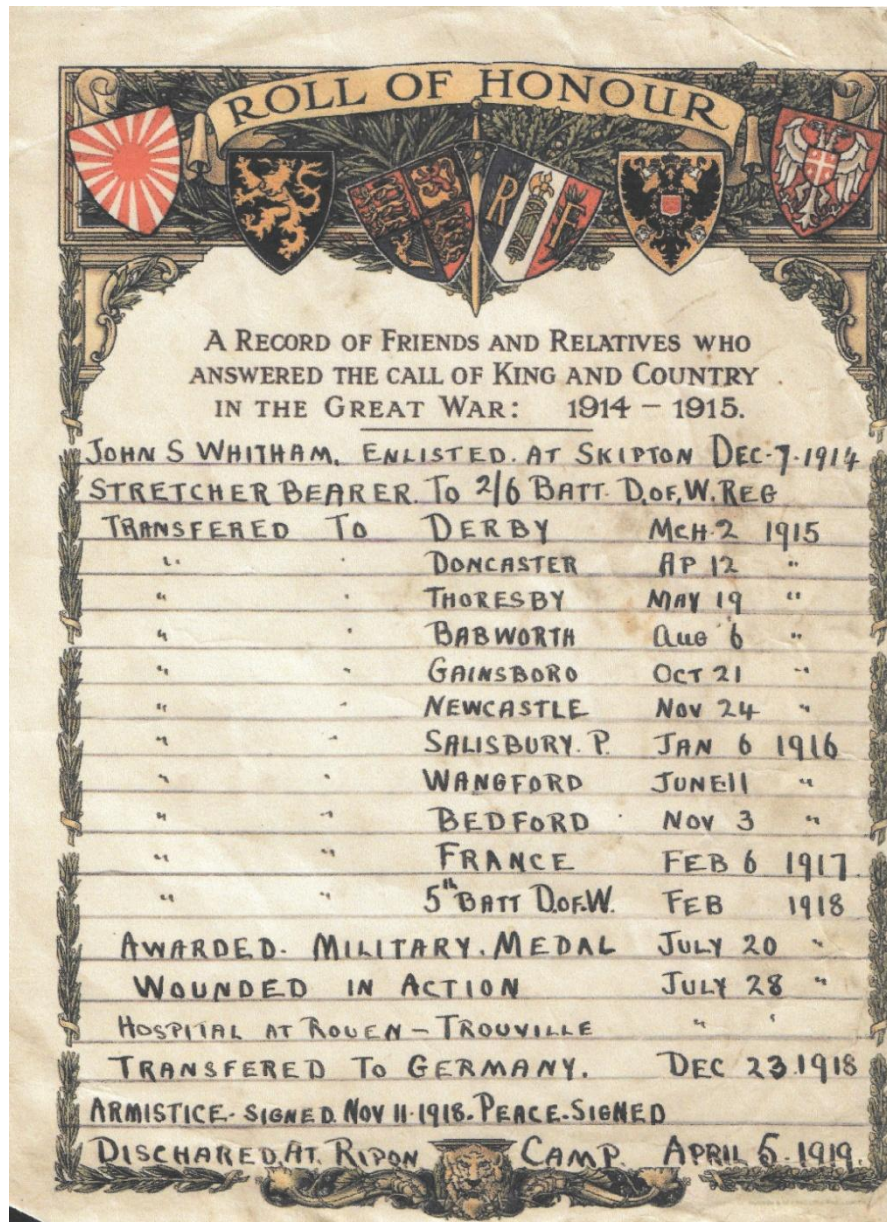 ROLL OF HONOUR
R F
A RECORD OF FRIENDS AND RELATIVES WHO
ANSWERED THE CALL OF KING AND COUNTRY
IN THE GREAT WAR: 1914 – 1915.
JOHN S WHITHAM. ENLISTED. AT SKIPTON DEC-7-1914
STRETCHER BEARER. TO 2/6 BATT. D.OF.W. REG
TRANSFERED TO DERBY MCH. 2 1915
" " DONCASTER AP 12 "
" " THORESBY MAY 19 "
" " BABWORTH AUG 6 "
" " GAINSBORO OCT 21 "
" " NEWCASTLE NOV 24 "
" " SALISBURY. P. JAN 6 1916
" " WANGFORD JUNE 11 "
" " BEDFORD NOV 3 "
" " FRANCE FEB 6 1917.
" " 5th BATT D.OF.W. FEB 1918
AWARDED. MILITARY. MEDAL JULY 20 "
WOUNDED IN ACTION JULY 28 "
HOSPITAL AT ROUEN – TROUVILLE " "
TRANSFERED TO GERMANY. DEC 23.1918
ARMISTICE. SIGNED. NOV 11.1918. PEACE. SIGNED
DISCHARED. AT. RIPON CAMP. APRIL 5.1919.